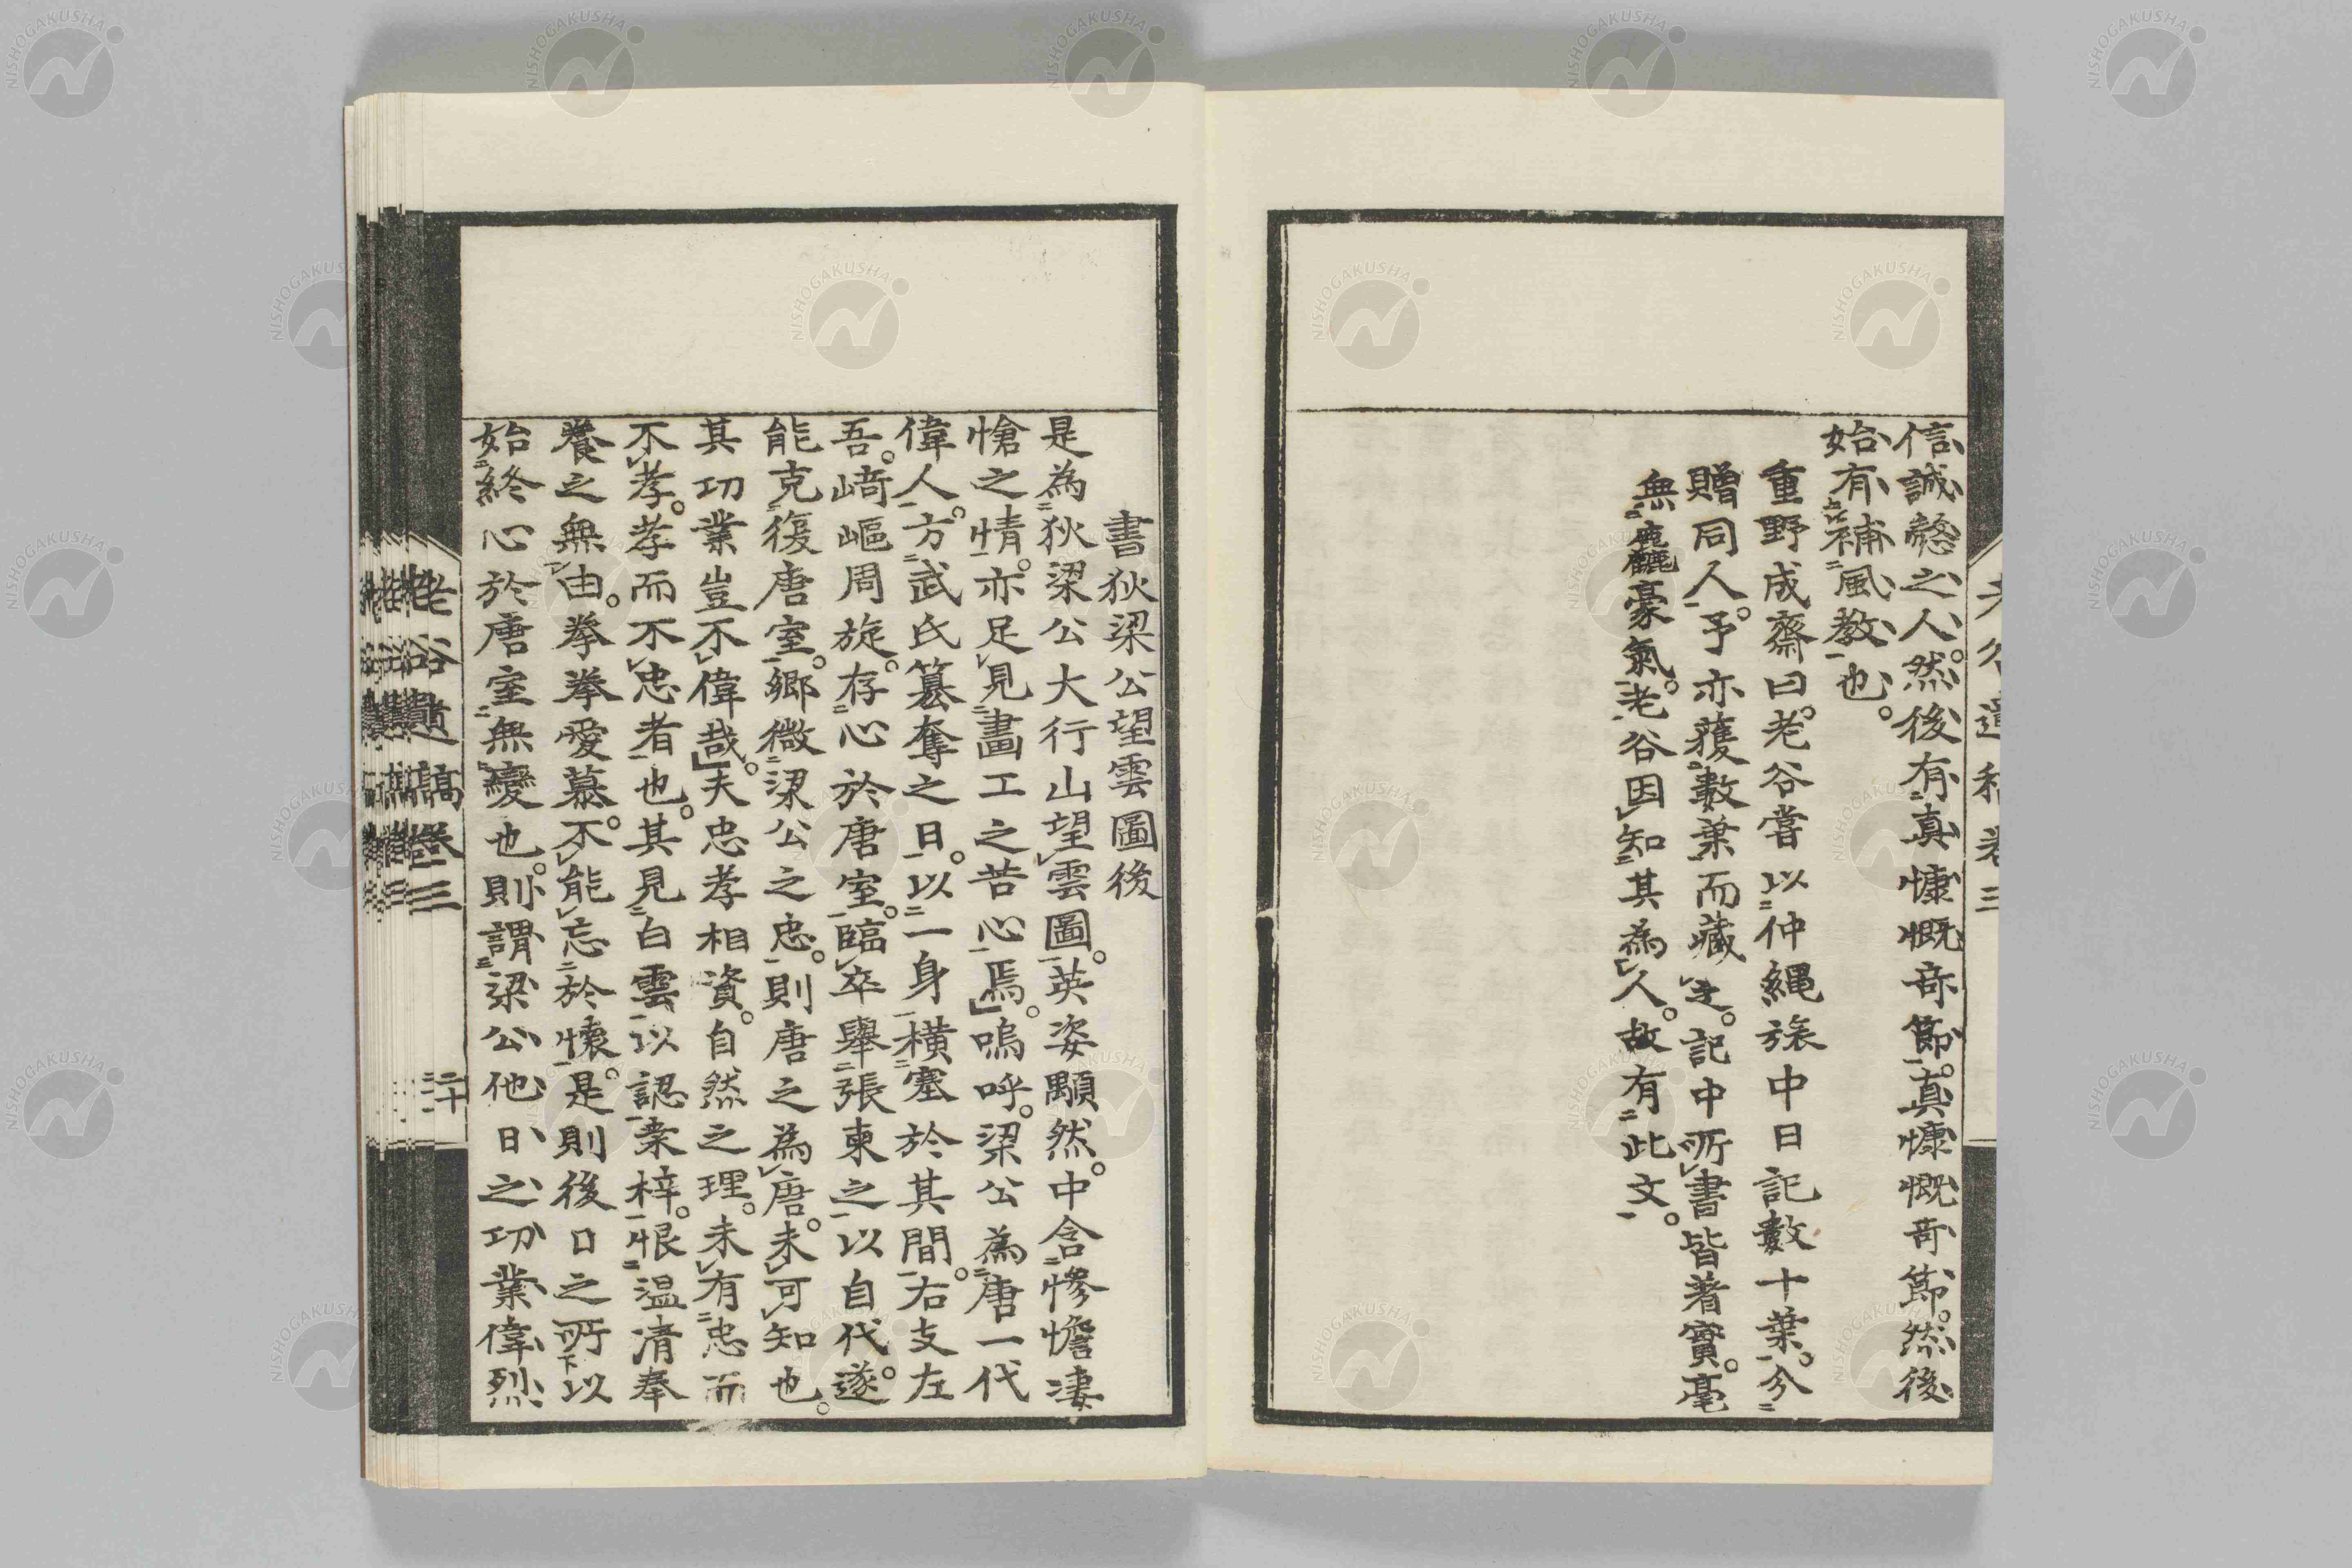 信誠慤之人。然後有真慷慨奇節。真慷慨奇節。然後
始有補風教也。
重野成齋曰。老谷嘗以仲縄旅中日記數十葉。分
贈同人。予亦獲數葉而藏之。記中所書皆著實。毫
無麤豪氣。老谷因知其為人。故有此文。
書狄梁公望雲圖後
是為狄梁公大行山望雲圖。英姿顒然。中含慘憺凄
愴之情。亦足見畫工之苦心焉。嗚呼。梁公為唐一代
偉人。方武氏簒奪之日。以一身橫塞於其間。右支左
吾。﨑嶇周旋。存心於唐室。臨卒舉張柬之以自代。遂
能克復唐室。鄉微梁公之忠。則唐之為唐。未可知也。
其功業豈不偉哉。夫忠孝相資。自然之理。未有忠而
不孝。孝而不忠者也。其見白雲以認桒梓。恨温凊奉
養之無由。拳拳愛慕。不能忘於懷。是則後日之所以
始終心於唐室無變也。則謂梁公他日之功業偉烈
老谷遺稿卷三
二十一
NISHOGAKUSHA